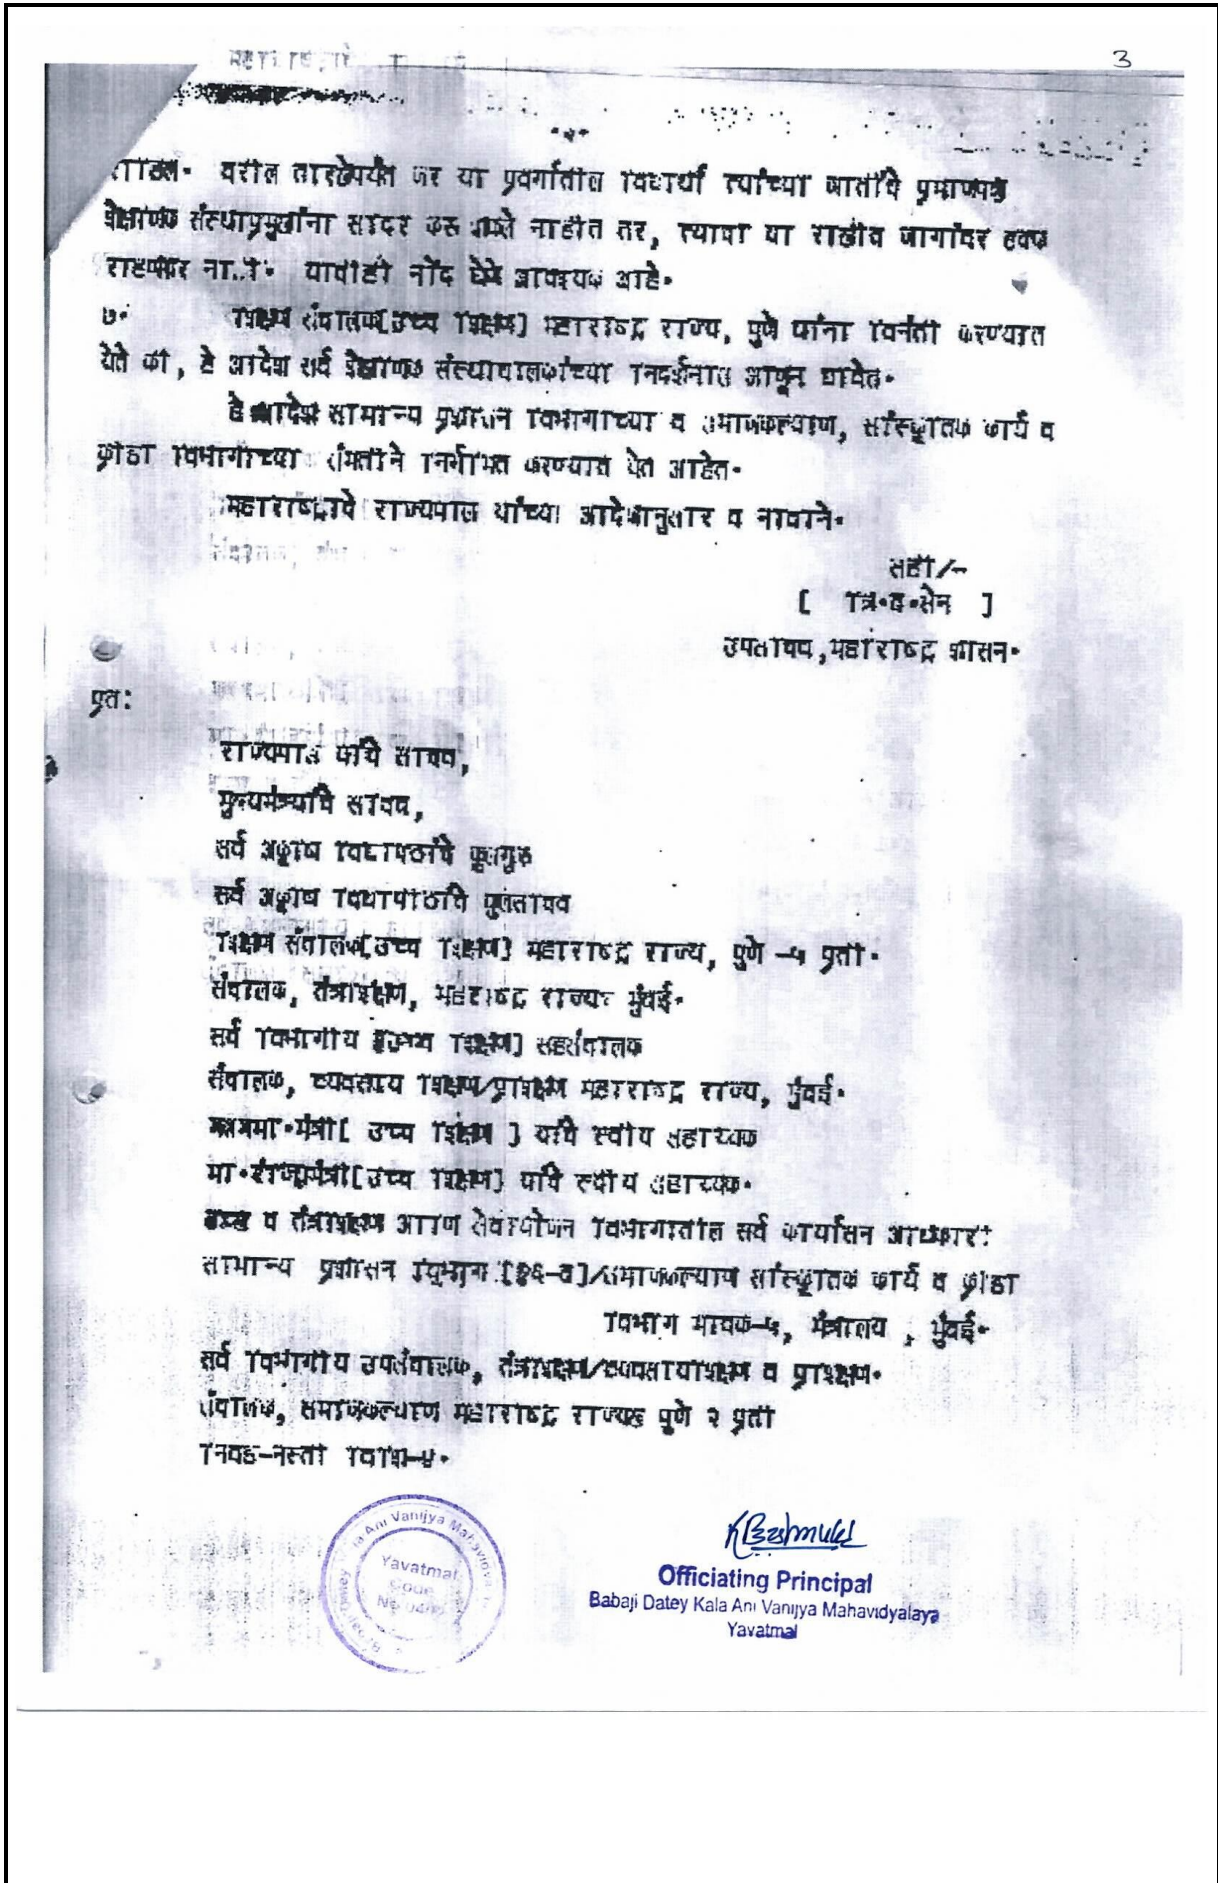 3
राहतील. वरील तारखेपर्यंत जर या प्रवर्गातील विद्यार्थी त्यांच्या जातीचे प्रमाणपत्र
शैक्षणिक संस्थाप्रमुखांना सादर करु शकले नाहीत तर, त्याचा या राखीव जागांवर हक्क
राहणार नाही. याचीही नोंद घेणे आवश्यक आहे.
७. शिक्षण संचालक[उच्च शिक्षण] महाराष्ट्र राज्य, पुणे यांना विनंती करण्यात
येते की, हे आदेश सर्व शैक्षणिक संस्थाचालकांच्या निदर्शनास आणून द्यावेत.
हे आदेश सामान्य प्रशासन विभागाच्या व समाजकल्याण, सांस्कृतिक कार्य व
क्रीडा विभागाच्या संमतीने निर्गमित करण्यात येत आहेत.
महाराष्ट्राचे राज्यपाल यांच्या आदेशानुसार व नावाने.
सही/-
[ त्रि.व.सेन ]
उपसचिव,महाराष्ट्र शासन.
प्रत:
राज्यपाल यांचे सचिव,
मुख्यमंत्र्यांचे सचिव,
सर्व अकृषि विद्यापीठांचे कुलगुरु
सर्व अकृषि विद्यापीठांचे कुलसचिव
शिक्षण संचालक[उच्च शिक्षण] महाराष्ट्र राज्य, पुणे -५ प्रती.
संचालक, तंत्रशिक्षण, महाराष्ट्र राज्य मुंबई.
सर्व विभागीय [उच्च शिक्षण] सहसंचालक
संचालक, व्यवसाय शिक्षण/प्रशिक्षण महाराष्ट्र राज्य, मुंबई.
मा.मंत्री[ उच्च शिक्षण ] यांचे स्वीय सहाय्यक
मा.राज्यमंत्री[उच्च शिक्षण] यांचे स्वीय सहाय्यक.
व तंत्रशिक्षण आणि सेवायोजन विभागातील सर्व कार्यासन अधिकारी
सामान्य प्रशासन विभाग [१६-ब]/समाजकल्याण सांस्कृतिक कार्य व क्रीडा
विभाग मावक-५, मंत्रालय , मुंबई.
सर्व विभागीय उपसंचालक, तंत्रशिक्षण/व्यवसायशिक्षण व प्रशिक्षण.
संचालक, समाजकल्याण महाराष्ट्र राज्य पुणे २ प्रती
निवड-नस्ती विशि-४.
Ani Vanijya Mahavidyalaya
Yavatmal
Code
No
Officiating Principal
Babaji Datey Kala Ani Vanijya Mahavidyalaya
Yavatmal